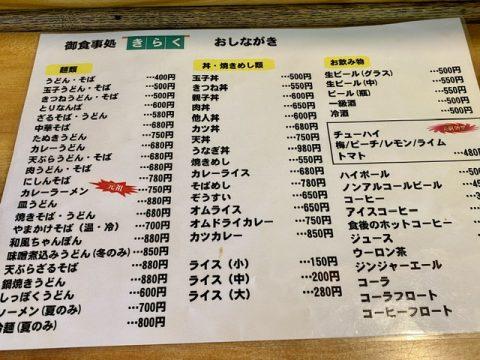 御食事処 きらく おしながき
麺類
うどん・そば …400円
玉子うどん・そば …500円
きつねうどん・そば …500円
とりなんば …550円
ざるそば・うどん …580円
中華そば
たぬきうどん …680円
カレーうどん …680円
天ぷらうどん・そば …680円
肉うどん・そば …680円
にしんそば …750円
カレーラーメン 元祖 …750円
皿うどん …880円
焼きそば・うどん …680円
やまかけそば(温・冷) …700円
和風ちゃんぽん
味噌煮込みうどん(冬のみ) …850円
天ぷらざるそば …880円
鍋焼きうどん …880円
しっぽくうどん …600円
ラーメン(夏のみ) …700円
冷麺(夏のみ) …800円
丼・焼きめし類
玉子丼 …500円
きつね丼 …550円
親子丼 …600円
肉丼
他人丼
カツ丼
天丼
うなぎ丼 …980円
焼きめし …550円
カレーライス
そばめし
ぞうすい
オムライス
オムドライカレー
カツカレー …850円
ライス(小) …150円
ライス(中) …200円
ライス(大) …280円
お飲み物
生ビール(グラス) …500円
生ビール(中)
ビール(瓶)
一級酒
冷酒 …500円
チューハイ
梅/ピーチ/レモン/ライム
トマト …480円
ハイボール
ノンアルコールビール
コーヒー
アイスコーヒー
食後のホットコーヒー
ジュース
ウーロン茶
ジンジャーエール
コーラ
コーラフロート
コーヒーフロート